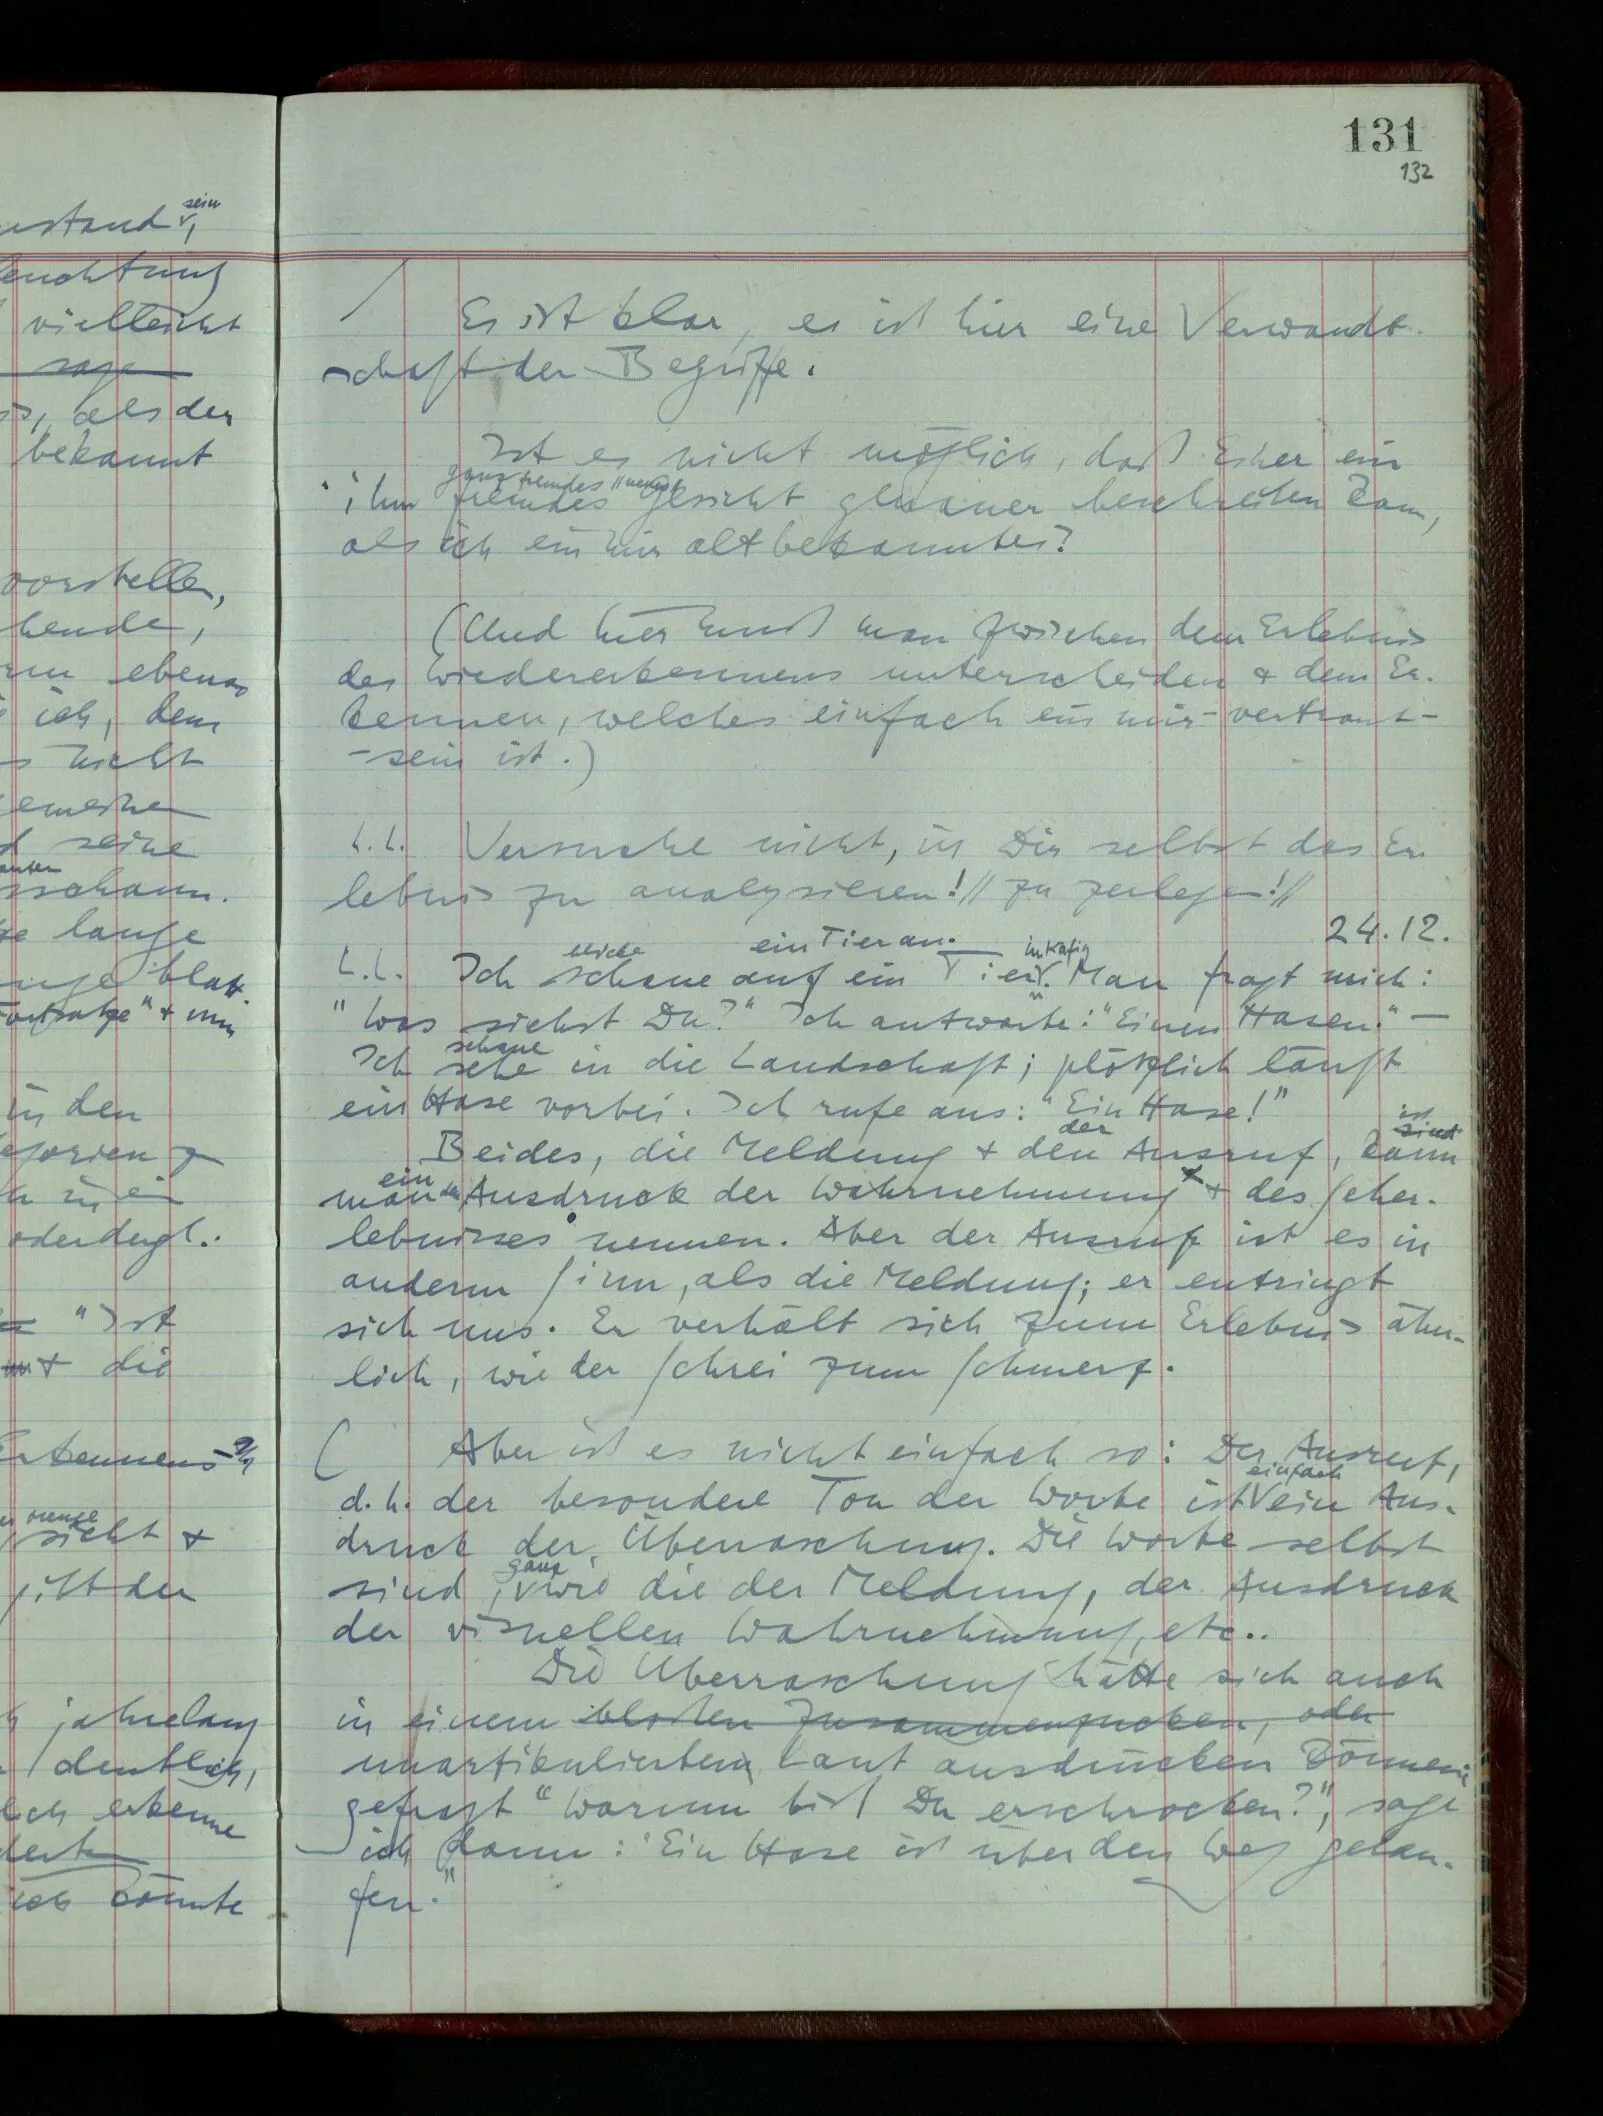 131
132
/ Es ist klar, es ist hier eine Verwandt-
schaft der Begriffe.
Ist es nicht möglich, daß Einer ein
ganz fremdes // neues //
ihm fremdes Gesicht genauer beschreiben kann,
als ich ein mir altbekanntes?
(Und hier muß man zwischen dem Erlebnis
des Wiedererkennens unterscheiden & dem Er-
kennen, welches einfach ein mir-vertraut-
-sein ist.)
Versuche nicht, in Dir selbst das Er-
lebnis zu analysieren! // zu zerlegen! //
24.12.
blicke ein Tier an. im Käfig
Ich schaue auf ein Tier. Man fragt mich:
"Was siehst Du?" Ich antworte: "Einen Hasen." —
schaue
Ich sehe in die Landschaft; plötzlich läuft
ein Hase vorbei. Ich rufe aus: "Ein Hase!"
der ist sind
Beides, die Meldung & den Ausruf, kann
ein
man den Ausdruck der Wahrnehmung & des Seher-
lebnisses nennen. Aber der Ausruf ist es in
anderm Sinn, als die Meldung; er entringt
sich uns. Er verhält sich zum Erlebnis ähn-
lich, wie der Schrei zum Schmerz.
( Aber ist es nicht einfach so: Der Ausruf,
einfach
d.h. der besondere Ton der Worte ist ein Aus-
druck der Überraschung. Die Worte selbst
ganz
sind, wie die der Meldung, der Ausdruck
der visuellen Wahrnehmung, etc..
Die Überraschung hätte sich auch
in einem bloßen Zusammenzucken, oder
unartikulierten Laut ausdrücken können;
gefragt "Warum bist Du erschrocken?", sage
ich dann: "Ein Hase ist über den Weg gelau-
fen."
sein
vielleicht
sage
als der
bekannt
vorstellen,
ebenso
ich, dem
nicht
seine
lange
in den
oder dergl.:
"Ist
& die
Erkennens
sieht &
gilt der
jahrelang
deutlich,
ich erkenne
ich könnte